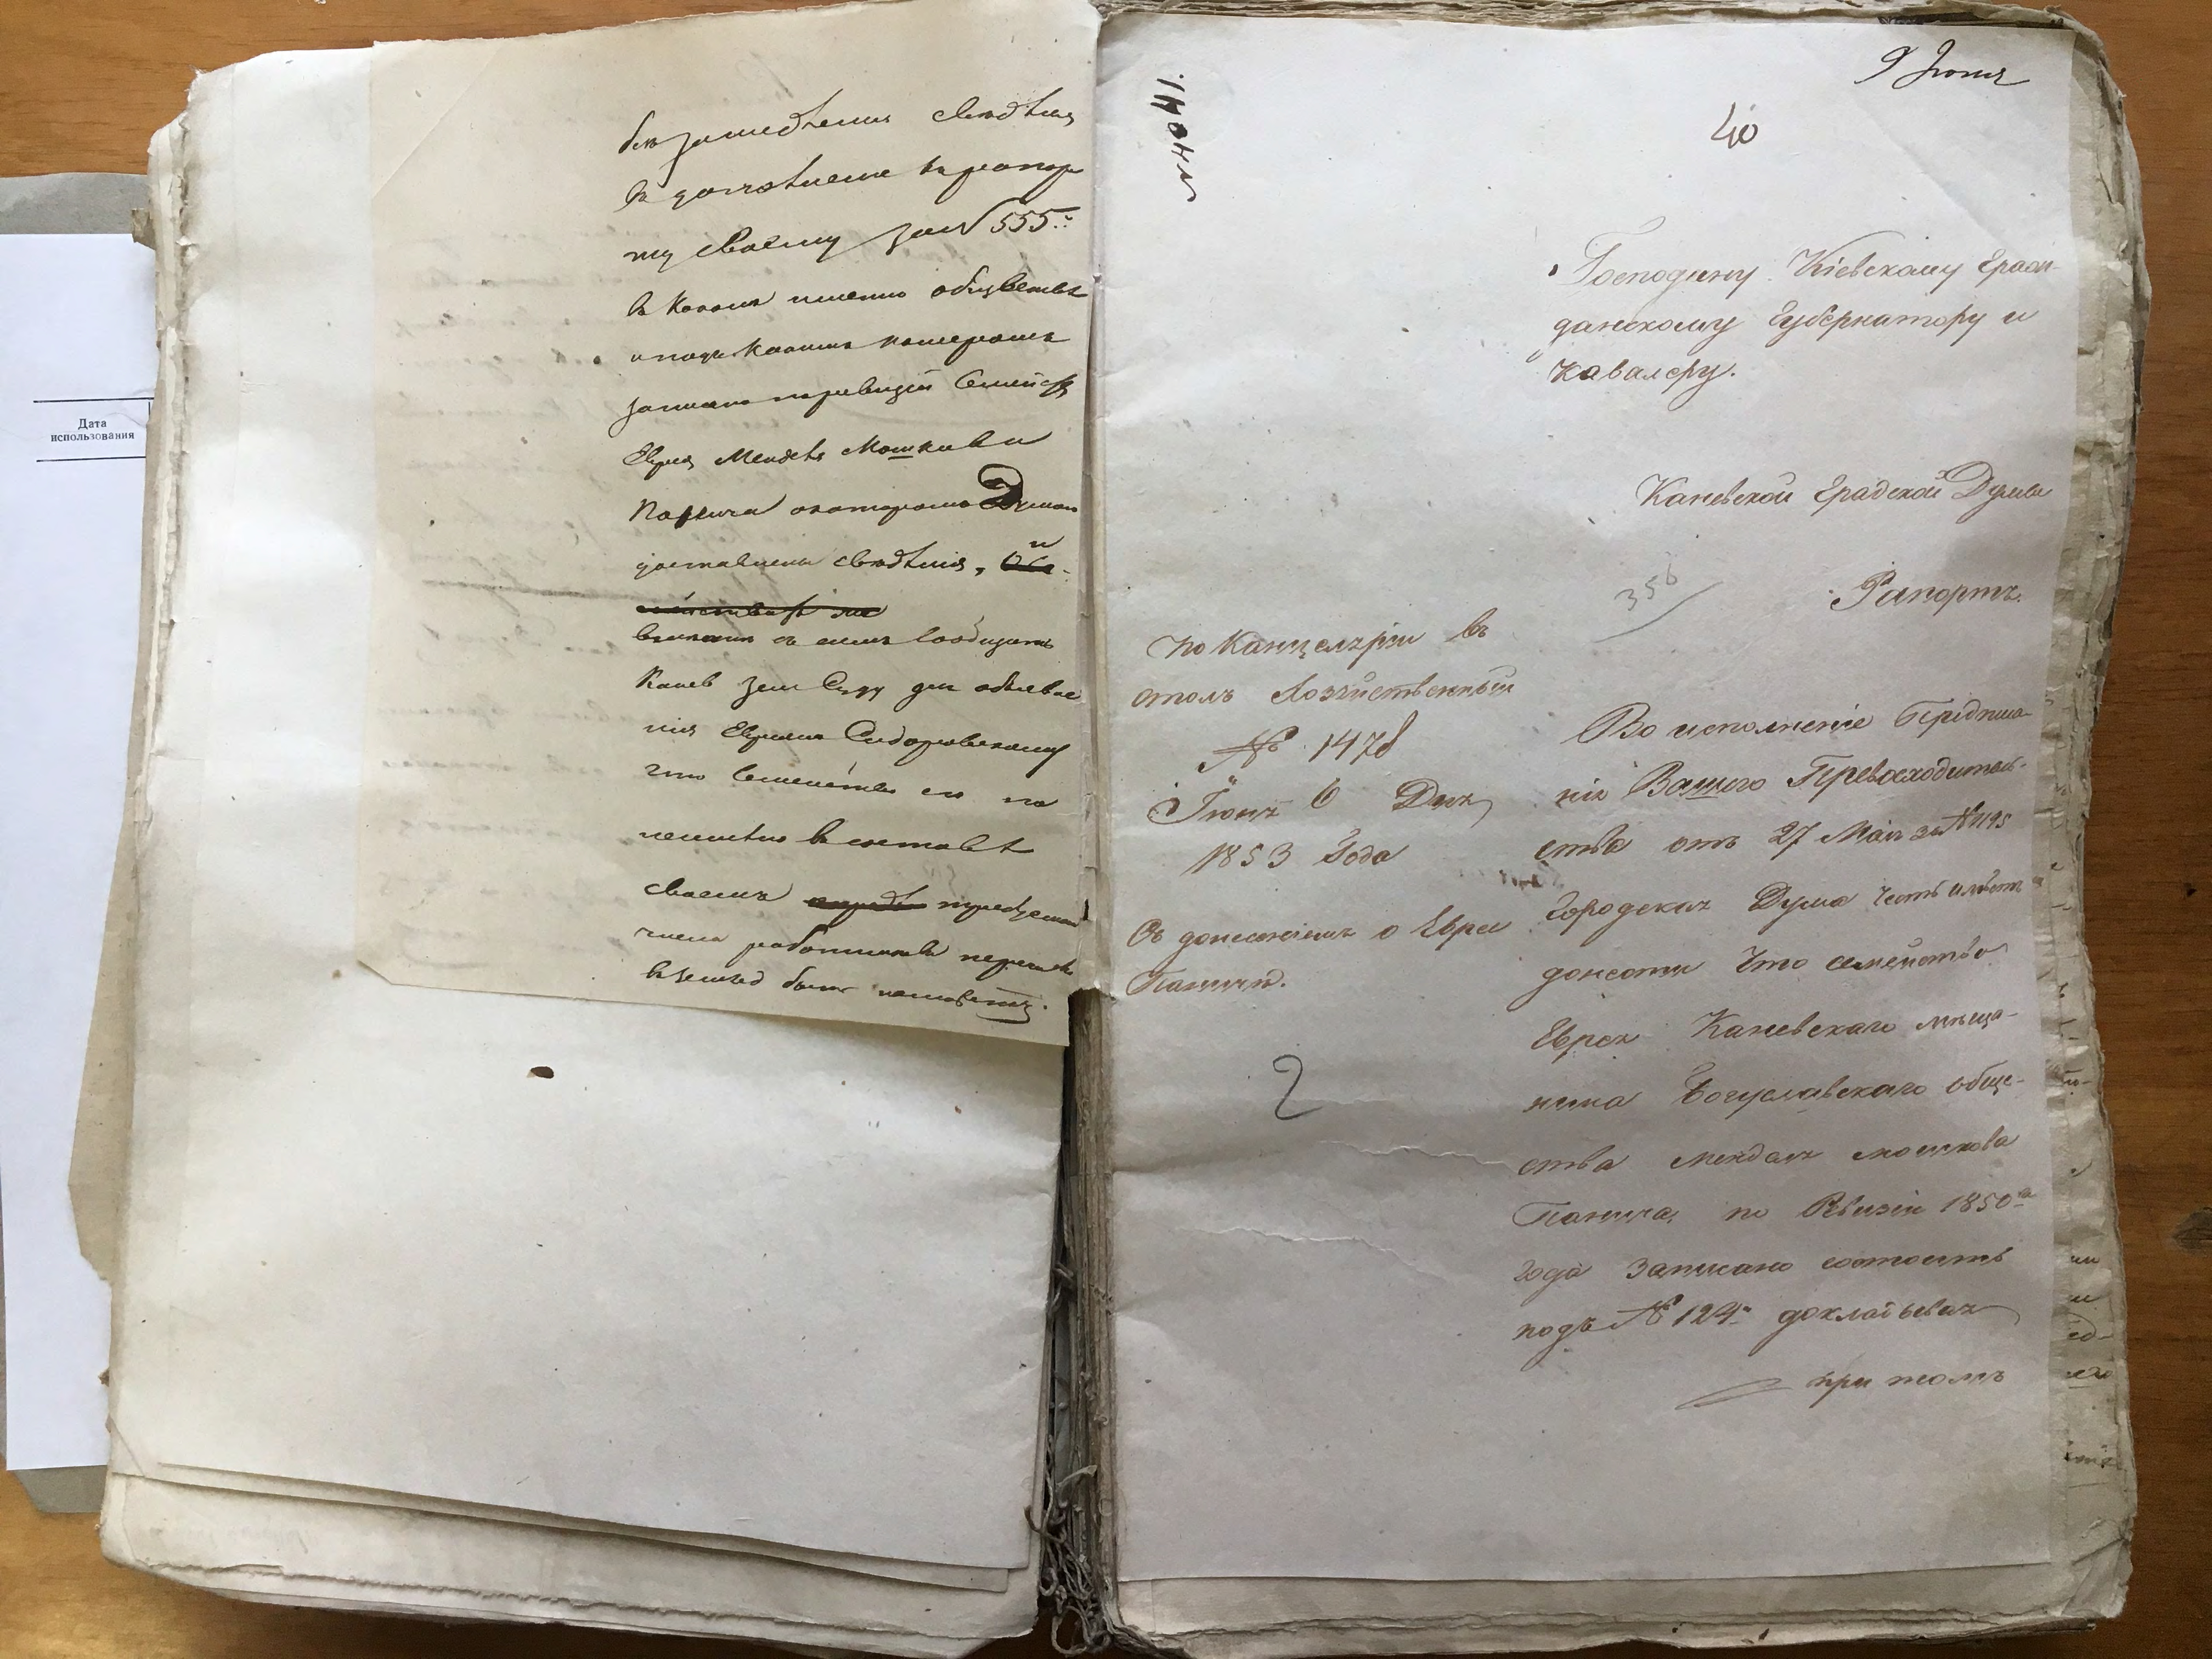 Дата
использования
безъ замедленія свѣдѣнія
въ дополненіе къ рапор
ту своему за № 555.
въ какомъ именно обществѣ
и подъ какимъ номеромъ
записано по ревизіи Семейств
Еврея Менделя Мошкова
Панича о которомъ Думою
доставлены свѣдѣнія, и
о семъ сообщить
Канев Зем Суду для объявле
нія Евреямъ Сидоровскому
что Семейство его по
неимѣнію въ составѣ
своемъ
числа работниковъ
быть не можетъ.
9 Іюня
40
Господину Кіевскому Граж-
данскому Губернатору и
Кавалеру.
Каневской Градской Думы
356
Рапортъ.
По Канцеляріи въ
столъ Хозяйственный
№ 1478
Іюня 6 Дня
1853 Года
Съ донесеніемъ о Евреѣ
Паничѣ.
2
Во исполненіе Предписа-
нія Вашего Превосходитель-
ства отъ 27 Мая за № 1195
Городская Дума честь имѣетъ
донести что семейство
Еврея Каневскаго мѣща-
нина Богуславскаго обще-
ства Менделя Мошкова
Панича, по Ревизіи 1850го
года записано состоитъ
подъ № 124. докладывая
при томъ